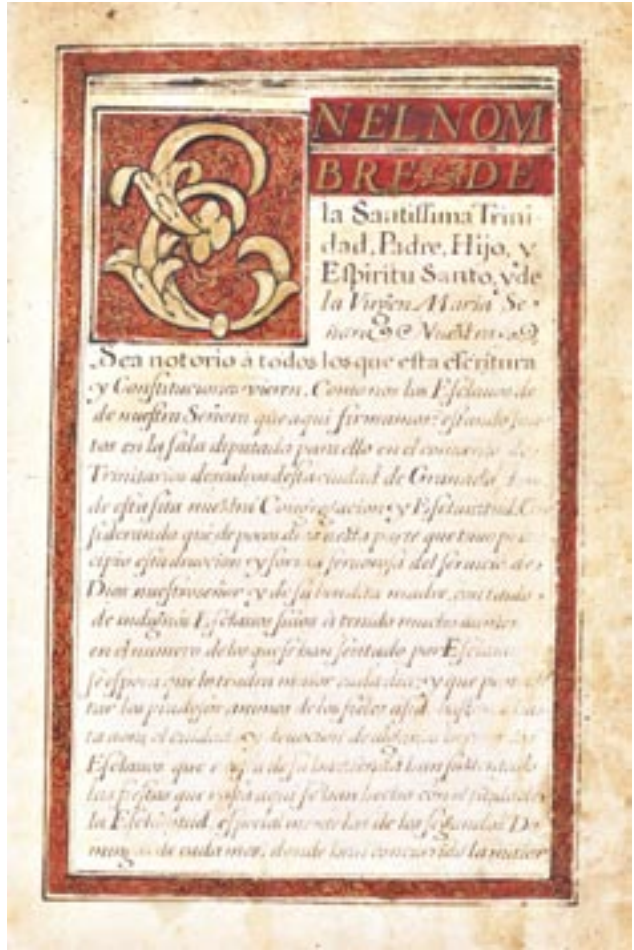 EN EL NOM
BRE DE
la Santissima Trini
dad, Padre, Hijo, y
Espiritu Santo, y de
la Virgen Maria Se
ñora Nuestra
Sea notorio à todos los que esta escritura
y Constituciones vieren, Como nos los Esclavos de
de nuestra Señora que aqui firmamos: estando jun
tos en la sala diputada para ello en el convento de
Trinitarios descalzos desta ciudad de Granada,
de esta sita nuestra Congregacion y Esclavitud, Co
siderando que de pocos a esta parte que tuvo prin
cipio esta devocion y forma del servicio de
Dios nuestro señor y de su bendita madre, con titulo
de indignos Esclavos suios à tenido mucho aumento
en el numero de los que se han sentado por Esclavos
se espera que lo tendra maior cada dia: y que
tar los piadosos animos de los fieles
el cuidado y devocion de
Esclavos que han sustentado
las fiestas que se han hecho con el titulo de
la Esclavitud, especialmente las de los segundos Do
mingos de cada mes, donde la maior